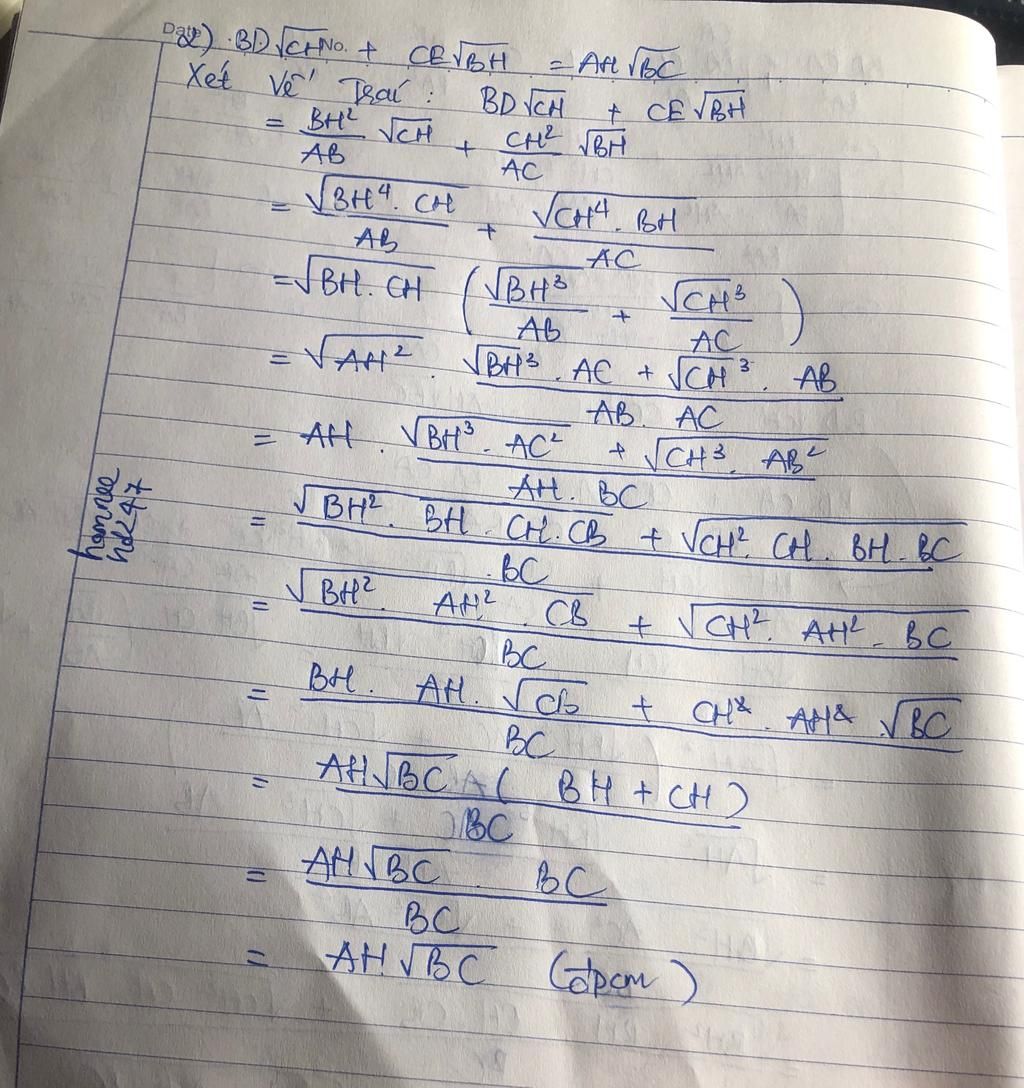 Date No.
2) BD√CH + CE√BH = AH√BC
Xét Vế Trái : BD√CH + CE√BH
= BH²/AB √CH + CH²/AC √BH
= √(BH⁴. CH)/AB + √(CH⁴. BH)/AC
= √(BH. CH) (√(BH³)/AB + √(CH³)/AC)
= √(AH²) . (√BH³ . AC + √CH³ . AB)/(AB. AC)
= AH . (√(BH³. AC²) + √(CH³. AB²))/(AH. BC)
= (√(BH². BH. CH. CB) + √(CH². CH. BH. BC))/BC
= (√(BH². AH². CB) + √(CH². AH². BC))/BC
= (BH. AH. √CB + CH. AH √BC)/BC
= AH√BC (BH + CH)/BC
= (AH√BC . BC)/BC
= AH√BC (đpcm)